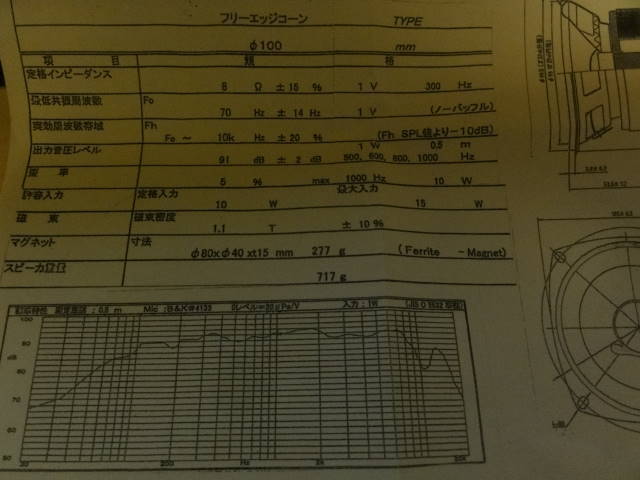 フリーエッジコーン TYPE
φ100 mm
項 目 規 格
定格インピーダンス 8 Ω ± 15 % 1 V 300 Hz
最低共振周波数 Fo 70 Hz ± 14 Hz 1 V (ノーバッフル)
実効周波数帯域 Fh Fo ~ 10k Hz ± 20 % (Fh SPL値より-10dB)
出力音圧レベル 91 dB ± 2 dB 1 W 0.5 m
500, 600, 800, 1000 Hz
歪 率 5 % max 1000 Hz 10 W
許容入力 定格入力 最大入力
10 W 15 W
磁 束 磁束密度
1.1 T ± 10 %
マグネット 寸法
φ80xφ40 xt15 mm 277 g (Ferrite -Magnet)
スピーカ
717 g
測定距離 : 0.5 m Mic :B&K#4133 入力 : 1W
100
90
dB
80
70
60
50
20 200 Hz 2k 20k